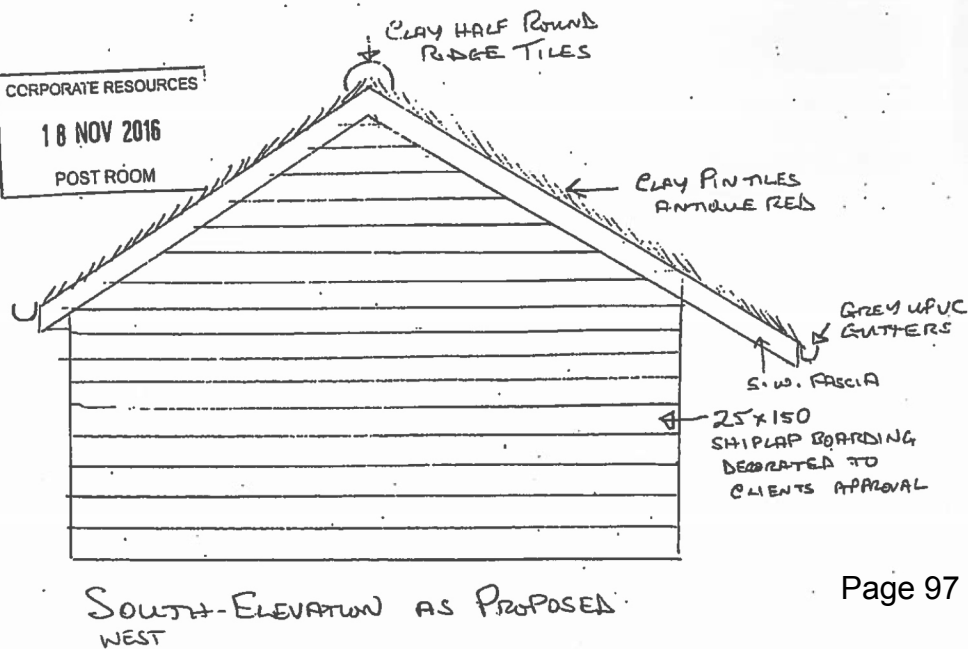 CLAY HALF ROUND
RIDGE TILES
CORPORATE RESOURCES
18 NOV 2016
POST ROOM
CLAY PINTILES
ANTIQUE RED
GREY UPVC
GUTTERS
S.W. FASCIA
25x150
SHIPLAP BOARDING
DECORATED TO
CLIENTS APPROVAL
SOUTH-ELEVATION AS PROPOSED
WEST
Page 97